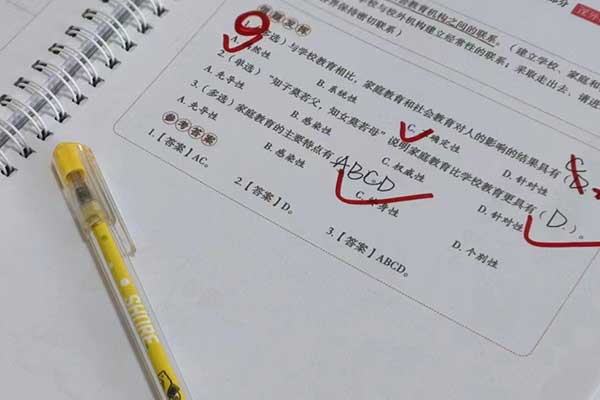 教育机构之间的联系。
学校与校外机构建立经常性的联系：采取走出去、请进
保持密切联系）
（建立学校、家庭和
课外
真题发标
1.（多选）与学校教育相比，家庭教育和社会教育对人的影响的结果具有（
A. 自然性
B. 系统性
C. 不确定性
D. 针对性
2.（单选）“知子莫若父，知女莫若母”说明家庭教育比学校教育更具有（D.）。
A. 先导性
B. 感染性
C. 权威性
D. 针对性
3.（多选）家庭教育的主要特点有 ABCD
A. 先导性
B. 感染性
C. 终身性
D. 个别性
参考答案
1.【答案】AC。
2.【答案】D。
3.【答案】ABCD。
SHORE